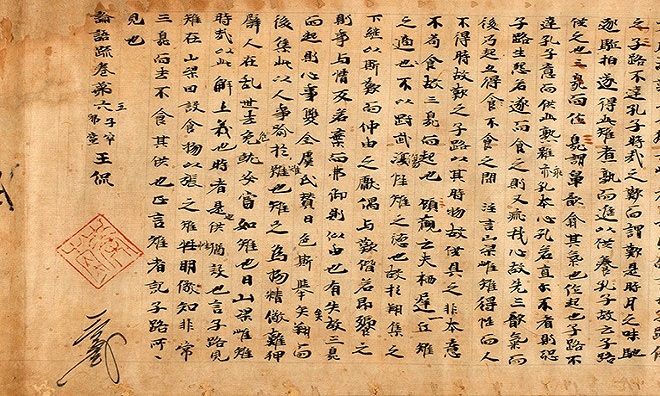 之子路不達孔子時哉之歎而謂歎是時月之味馳
逐駈拍遂得此雉者熟而進以供養孔子故云子路
供之也三臭而作臭謂鼻歆翕其氣也作起也子路不
達孔子意而供此熟雉乖孔本心孔若直尒不者則恐
子路生怨若遂而食之則又乖我心故先三臭氣而
後乃起得食不食之間 注言山梁雌雉得性而人
不得時故歎之子路以其時物故供具之非本意
不苟食故三臭而起也 顧歡云夫栖遲丘雉
之適也不以剛武傷雌雉之德也故於翔集之
下継以斯歎而仲由之獻偶与歎偕若即饗之
則事与情反若棄而弗御則似由也有失故三臭
而起則心事雙全虞氏贊曰色斯舉矣翔而
後集此以人事喻於雉也雉之為物精儆難狎
譬人在乱世去危就安當如雉也曰山梁雌雉
時哉以此解上義也時者是供猶設也言子路見
雉在山梁因設食物以張之雉性明儆知非常
三臭而去不食其供也正言雉者記子路所
見也
論語疏卷第六 王侃